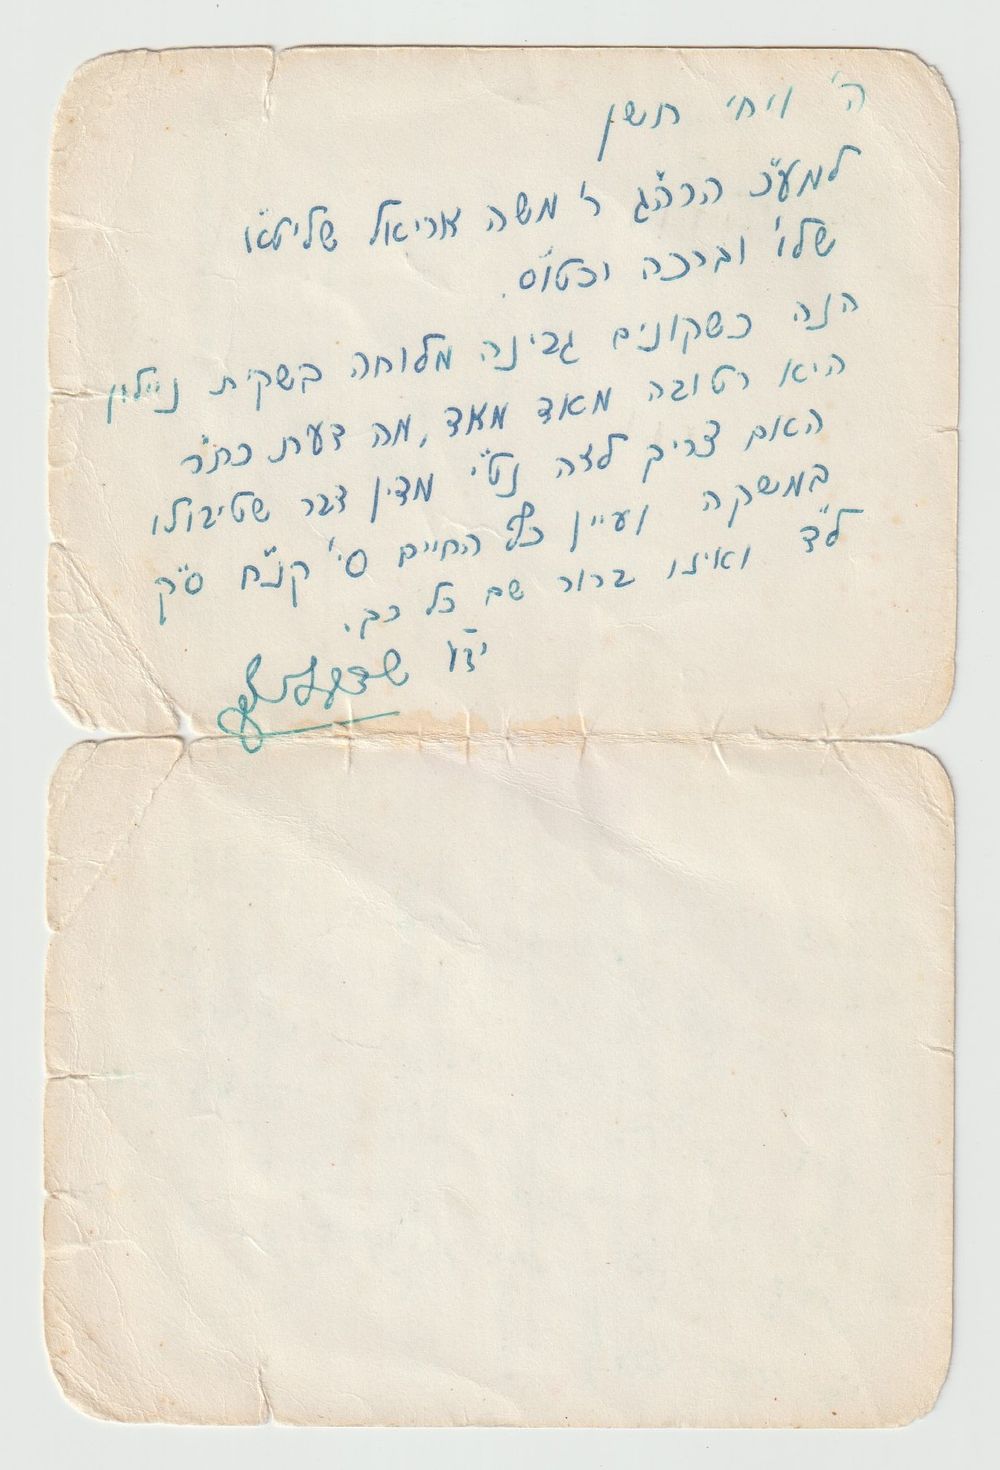 ה' ויחי תשן
למע"כ הרה"ג ר' משה אריאל שליט"א
שלו' וברכה וכטו"ס.
הנה כשקונים גבינה מלוחה בשקית ניילון
היא רטובה מאד מאד, מה דעת כת"ר
האם צריך לזה נט"י מדין דבר שטיבולו
במשקה ועיין כף החיים סי' קנ"ח ס"ק
ל"ד ואינו ברור שם כל כך.